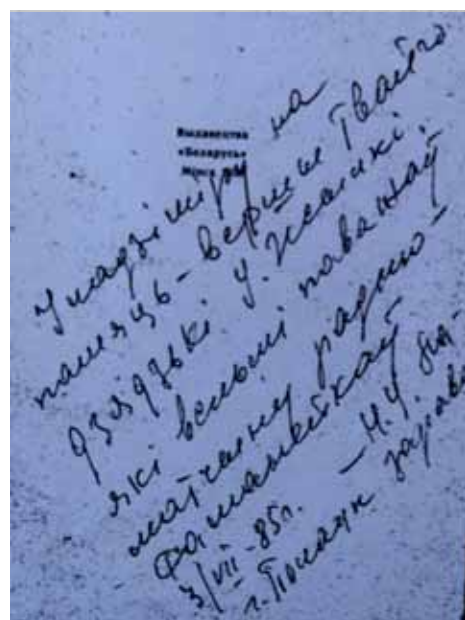 Выдавецтва
«Беларусь»
Уладзіміру на
памяць - вершы Твайго
дзядзькі У. Жылкі.
які вельмі паважаў
матчыну радню -
Фамы
3/VII-85г.
г. Полацк